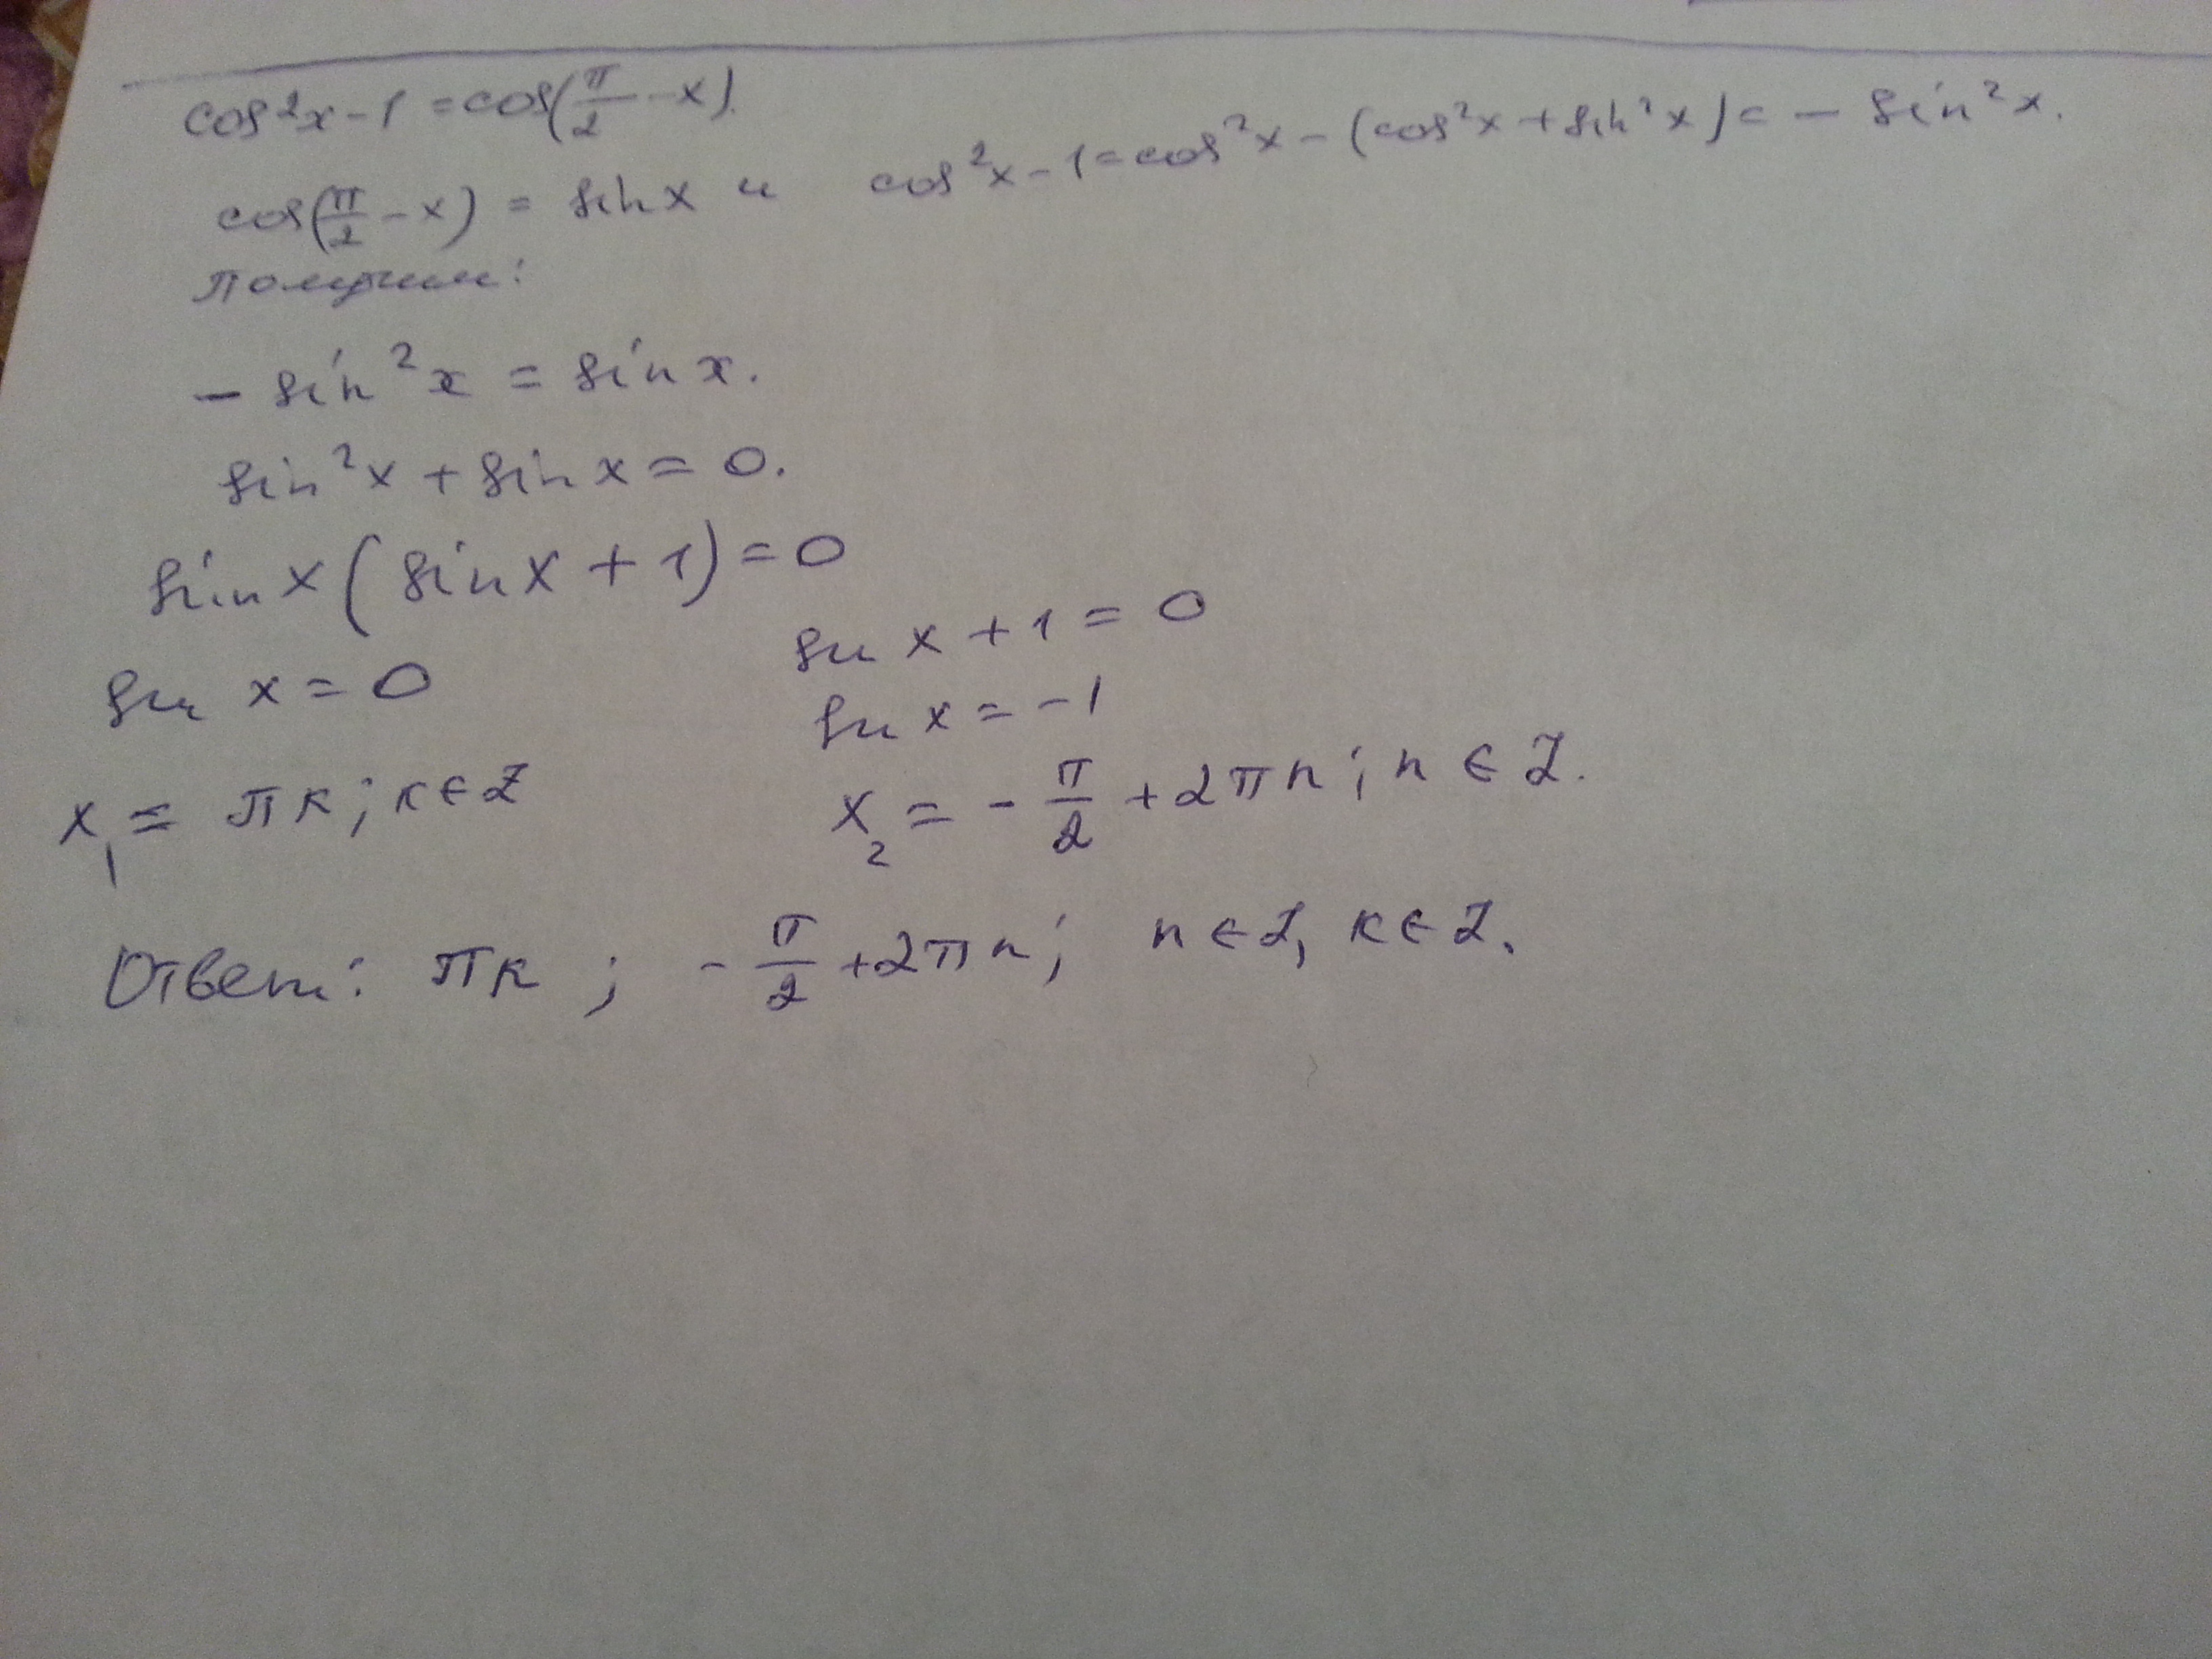 cos²x - 1 = cos(π/2 - x).
cos(π/2 - x) = sin x и cos²x - 1 = cos²x - (cos²x + sin²x) = - sin²x.
Получим:
- sin²x = sin x.
sin²x + sin x = 0.
sin x (sin x + 1) = 0
sin x = 0 sin x + 1 = 0
sin x = -1
x₁ = πк; к ∈ Z x₂ = - π/2 + 2πn; n ∈ Z.
Ответ: πк; - π/2 + 2πn; n ∈ Z, к ∈ Z.